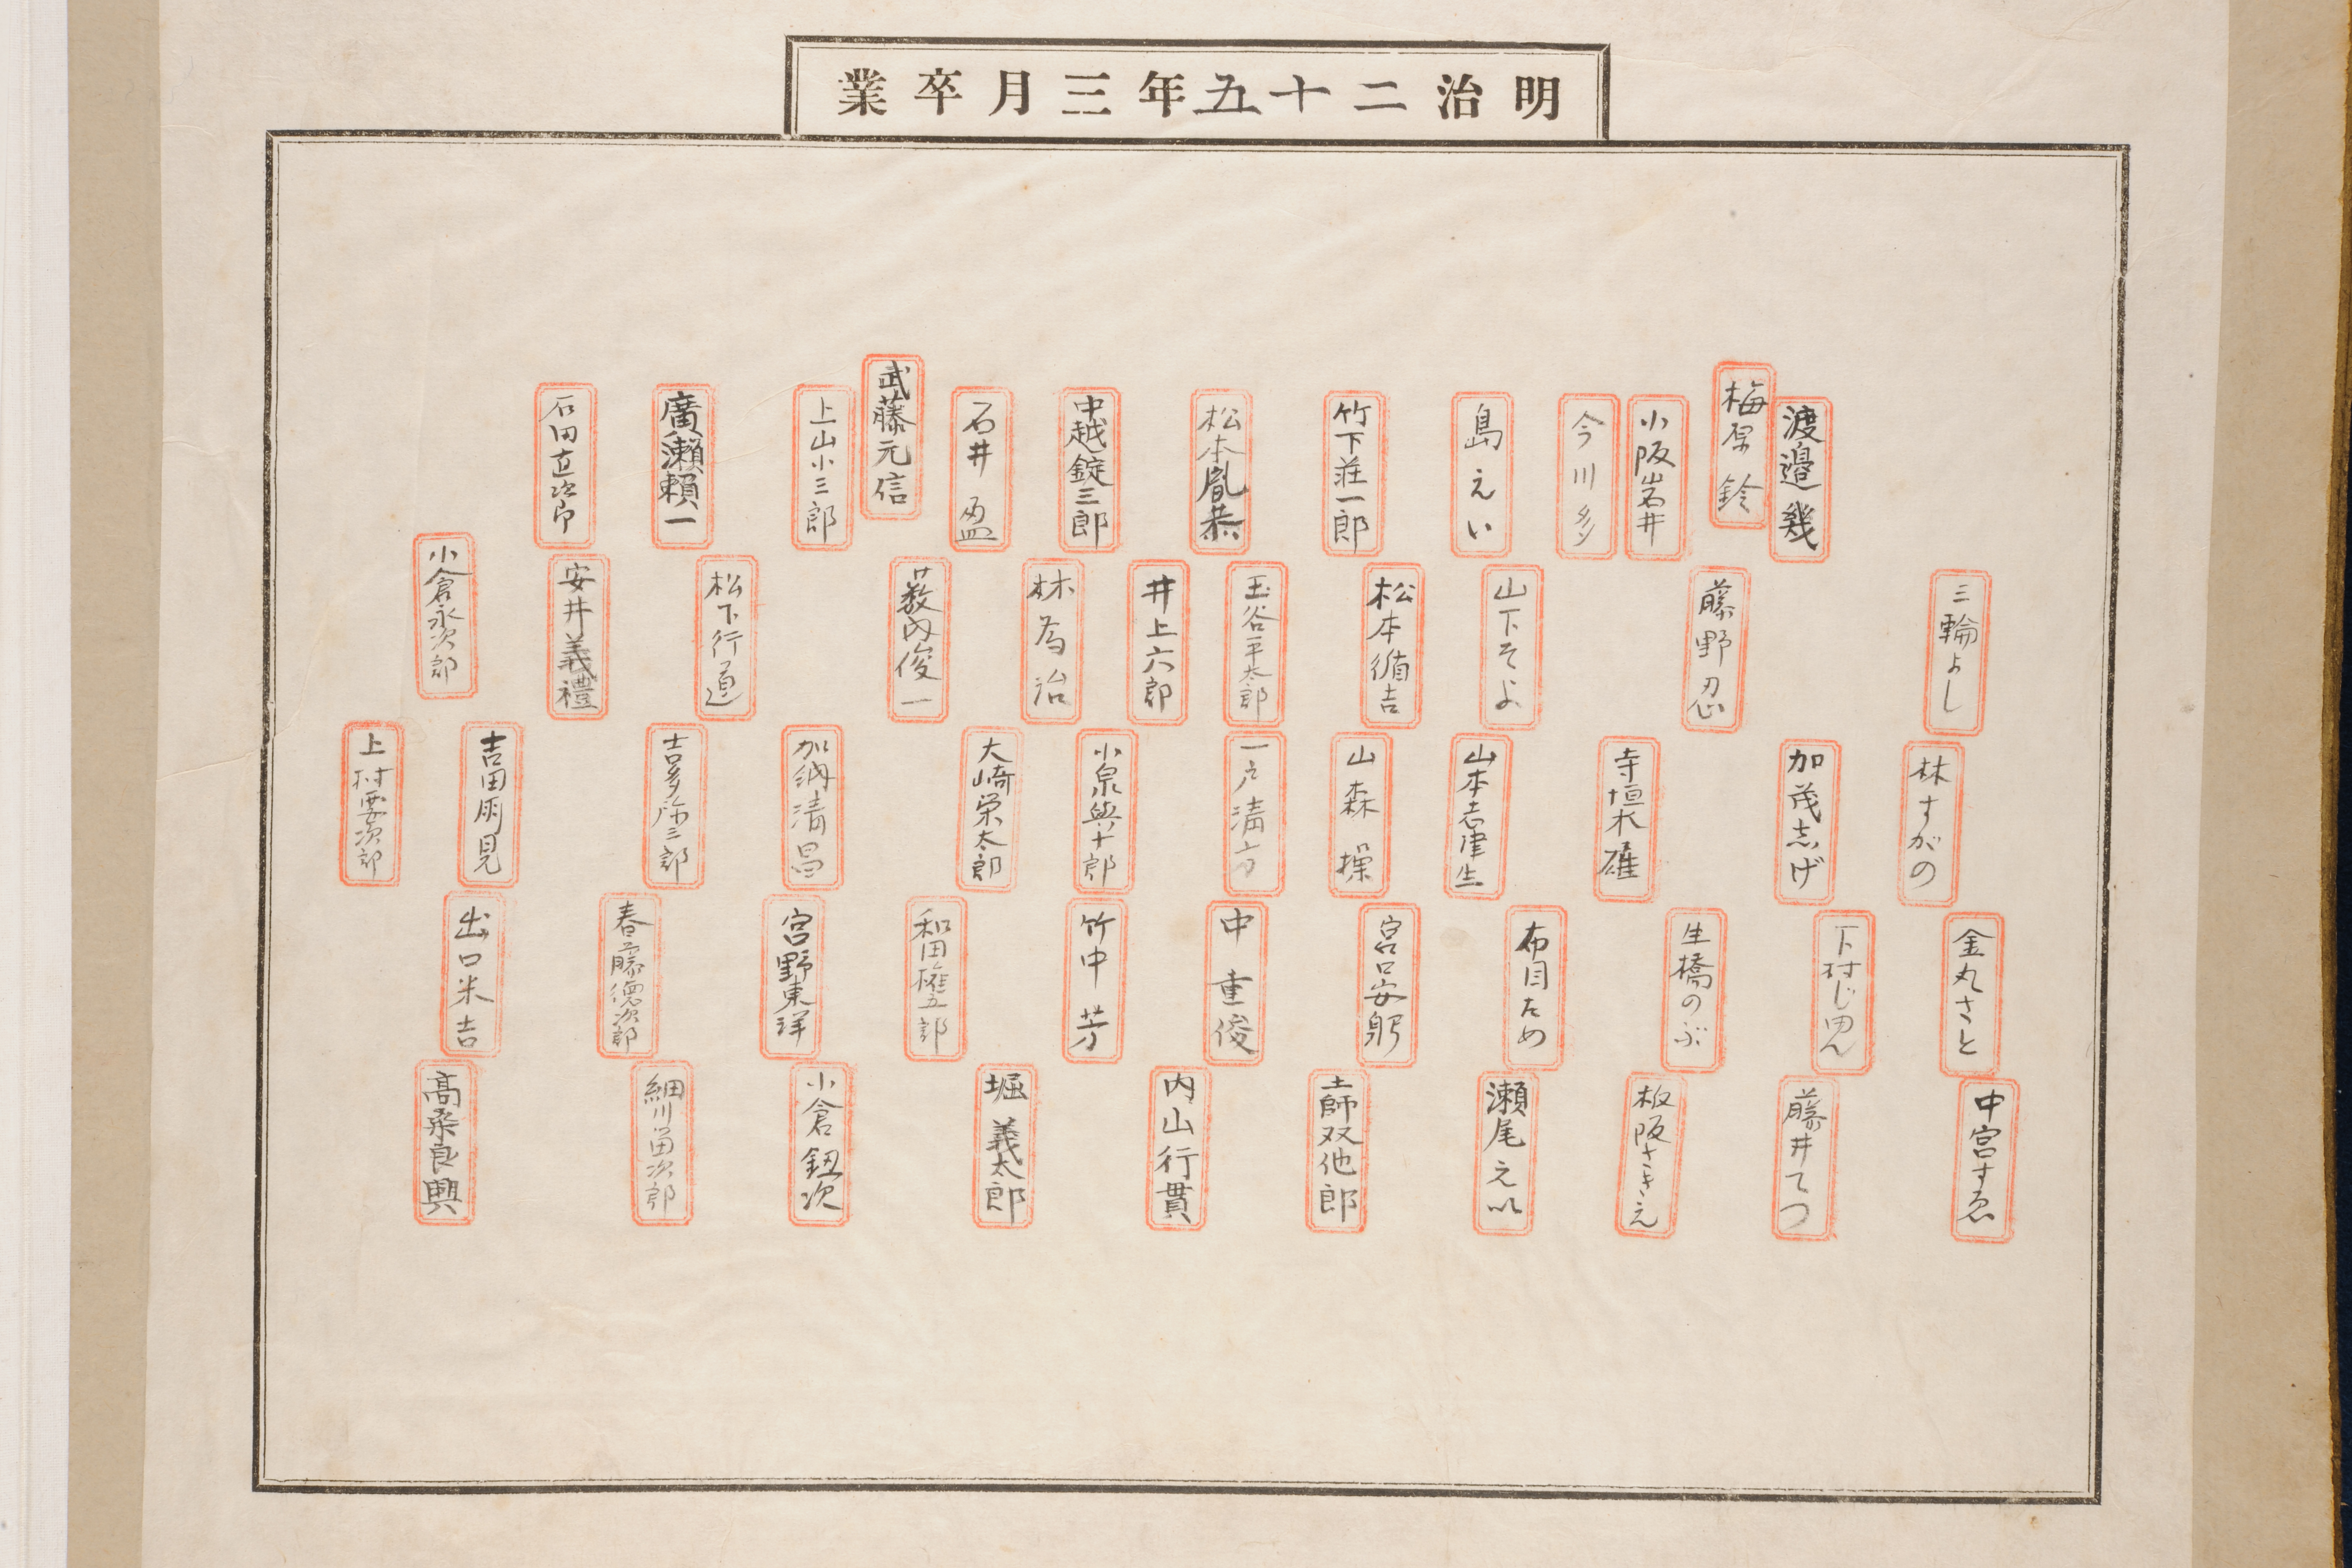 明治二十五年三月卒業
渡邉幾
梅原鈴
小阪岩井
今川多
島えい
竹下荘一郎
松本胤恭
中越錠三郎
石井盈
武藤元信
上山小三郎
廣瀬頼一
石田直次郎
三輪よし
藤野忍
山下そよ
松本循吉
玉谷平太郎
井上六郎
林為治
薮内俊一
松下行道
安井義禮
小倉永次郎
林すがの
加茂志げ
寺垣木雄
山本志津生
山森操
一戸清方
小泉與十郎
大崎栄太郎
加納清昌
喜多弥三郎
吉田雨見
上村要次郎
金丸さと
下村じ
生橋のぶ
布目ため
宮口安躬
中重俊
竹中芳
和田権五郎
宮野東洋
春藤徳次郎
出口米吉
中宮すゑ
藤井てつ
板阪さきえ
瀬尾えい
土師双他郎
内山行貫
堀義太郎
小倉鈕次
細川留次郎
高桑良興